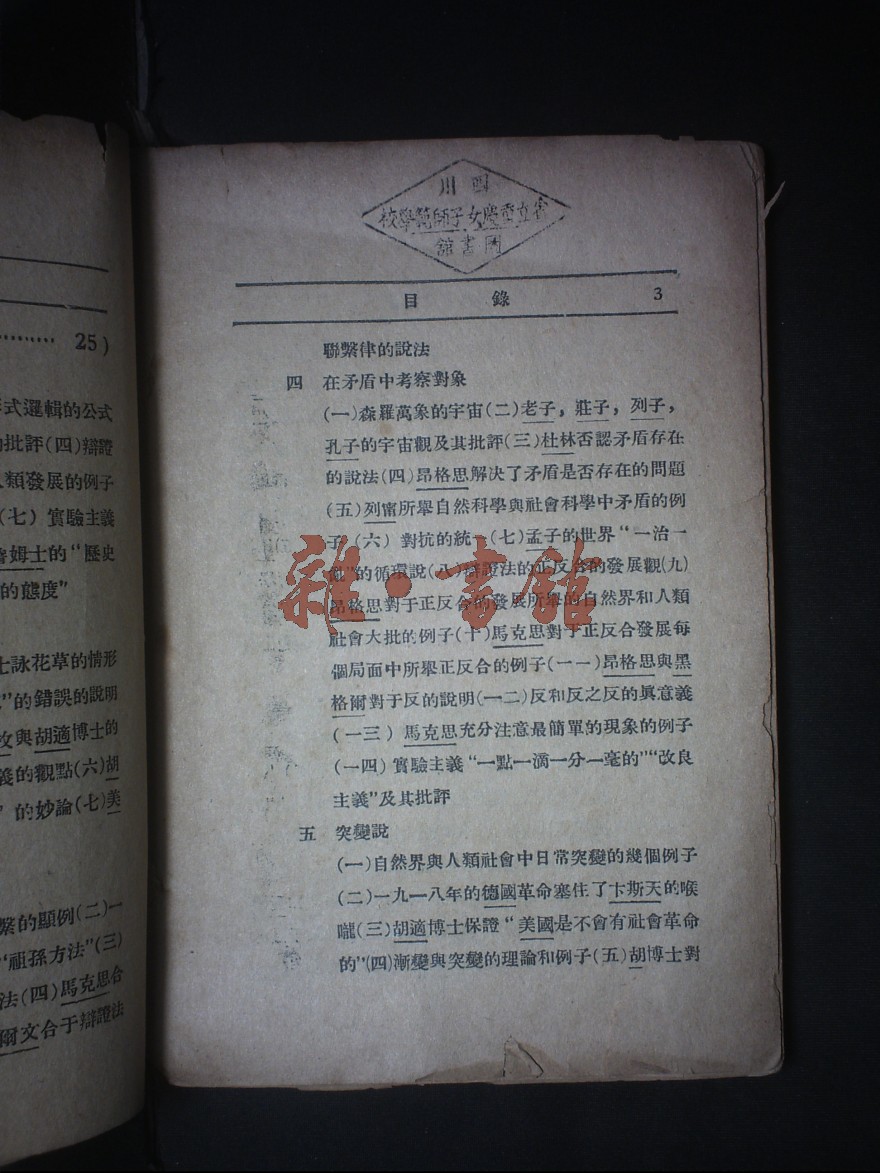 25)
式邏輯的公式
批評(四)辯證
類發展的例子
(七)實驗主義
姆士的“歷史
的態度”
士詠花草的情形
”的錯誤的說明
攻與胡適博士的
義的觀點(六)胡
”的妙論(七)美
繫的顯例(二)一
“祖孫方法”(三)
法(四)馬克思合
爾文合于辯證法
四川
省立重慶女子師範學校
圖書館
目錄 3
聯繫律的說法
四 在矛盾中考察對象
(一)森羅萬象的宇宙(二)老子，莊子，列子，
孔子的宇宙觀及其批評(三)杜林否認矛盾存在
的說法(四)昂格思解決了矛盾是否存在的問題
(五)列甯所舉自然科學與社會科學中矛盾的例
子(六)對抗的統一(七)孟子的世界“一治一
亂”的循環說(八)辯證法的正反合的發展觀(九)
昂格思對于正反合的發展所舉的自然界和人類
社會大批的例子(十)馬克思對于正反合發展每
個局面中所舉正反合的例子(一一)昂格思與黑
格爾對于反的說明(一二)反和反之反的眞意義
(一三)馬克思充分注意最簡單的現象的例子
(一四)實驗主義“一點一滴一分一毫的”“改良
主義”及其批評
五 突變說
(一)自然界與人類社會中日常突變的幾個例子
(二)一九一八年的德國革命塞住了卞斯天的喉
嚨(三)胡適博士保證“美國是不會有社會革命
的”(四)漸變與突變的理論和例子(五)胡博士對
雜·書館